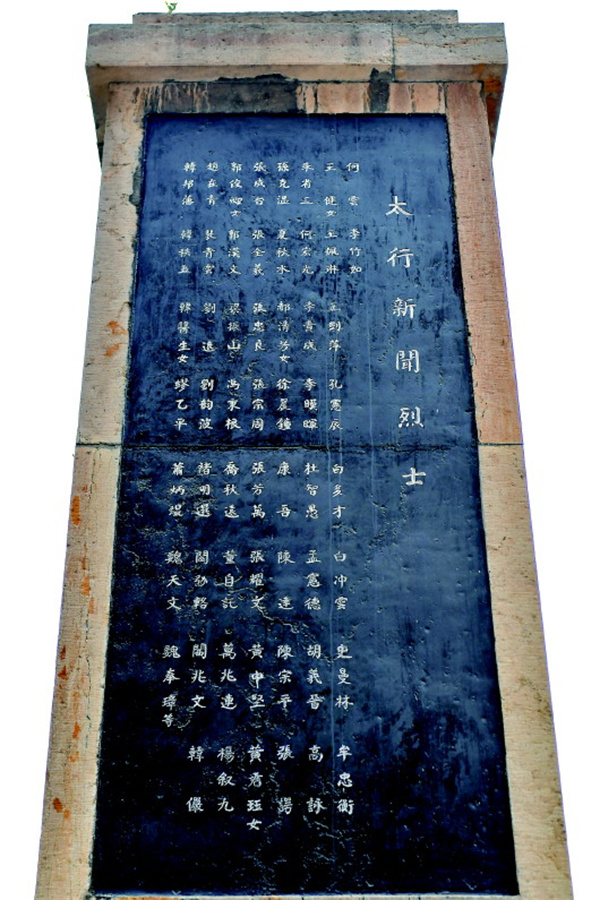 太行新聞烈士
何雲 李竹如
王健女 王佩琳 孔憲辰 白多才 白冲雲 史曼林 牟忠衡
李省三 何宏光 李青成 李暎暉 杜智愚 孟憲德 胡義晉 高詠
孫克溫 夏秋水 郝清秀女 徐晨鐘 康吾 陳達 陳宗平 張諤
張成台 張金義 張忠良 張宗周 張芳萬 張耀文 黃中堅 黃君珏女
郭俊卿女 郭漢文 梁振山 馮東根 喬秋遠 董自託 萬兆連 楊叙九
趙在青 裴青雲 劉遠 劉韵波 褚明選 閻兆文 韓儼
韓邦藩 韓秩五 韓醫生女 繆乙平 蕭炳焜 魏天文 魏奉璋等